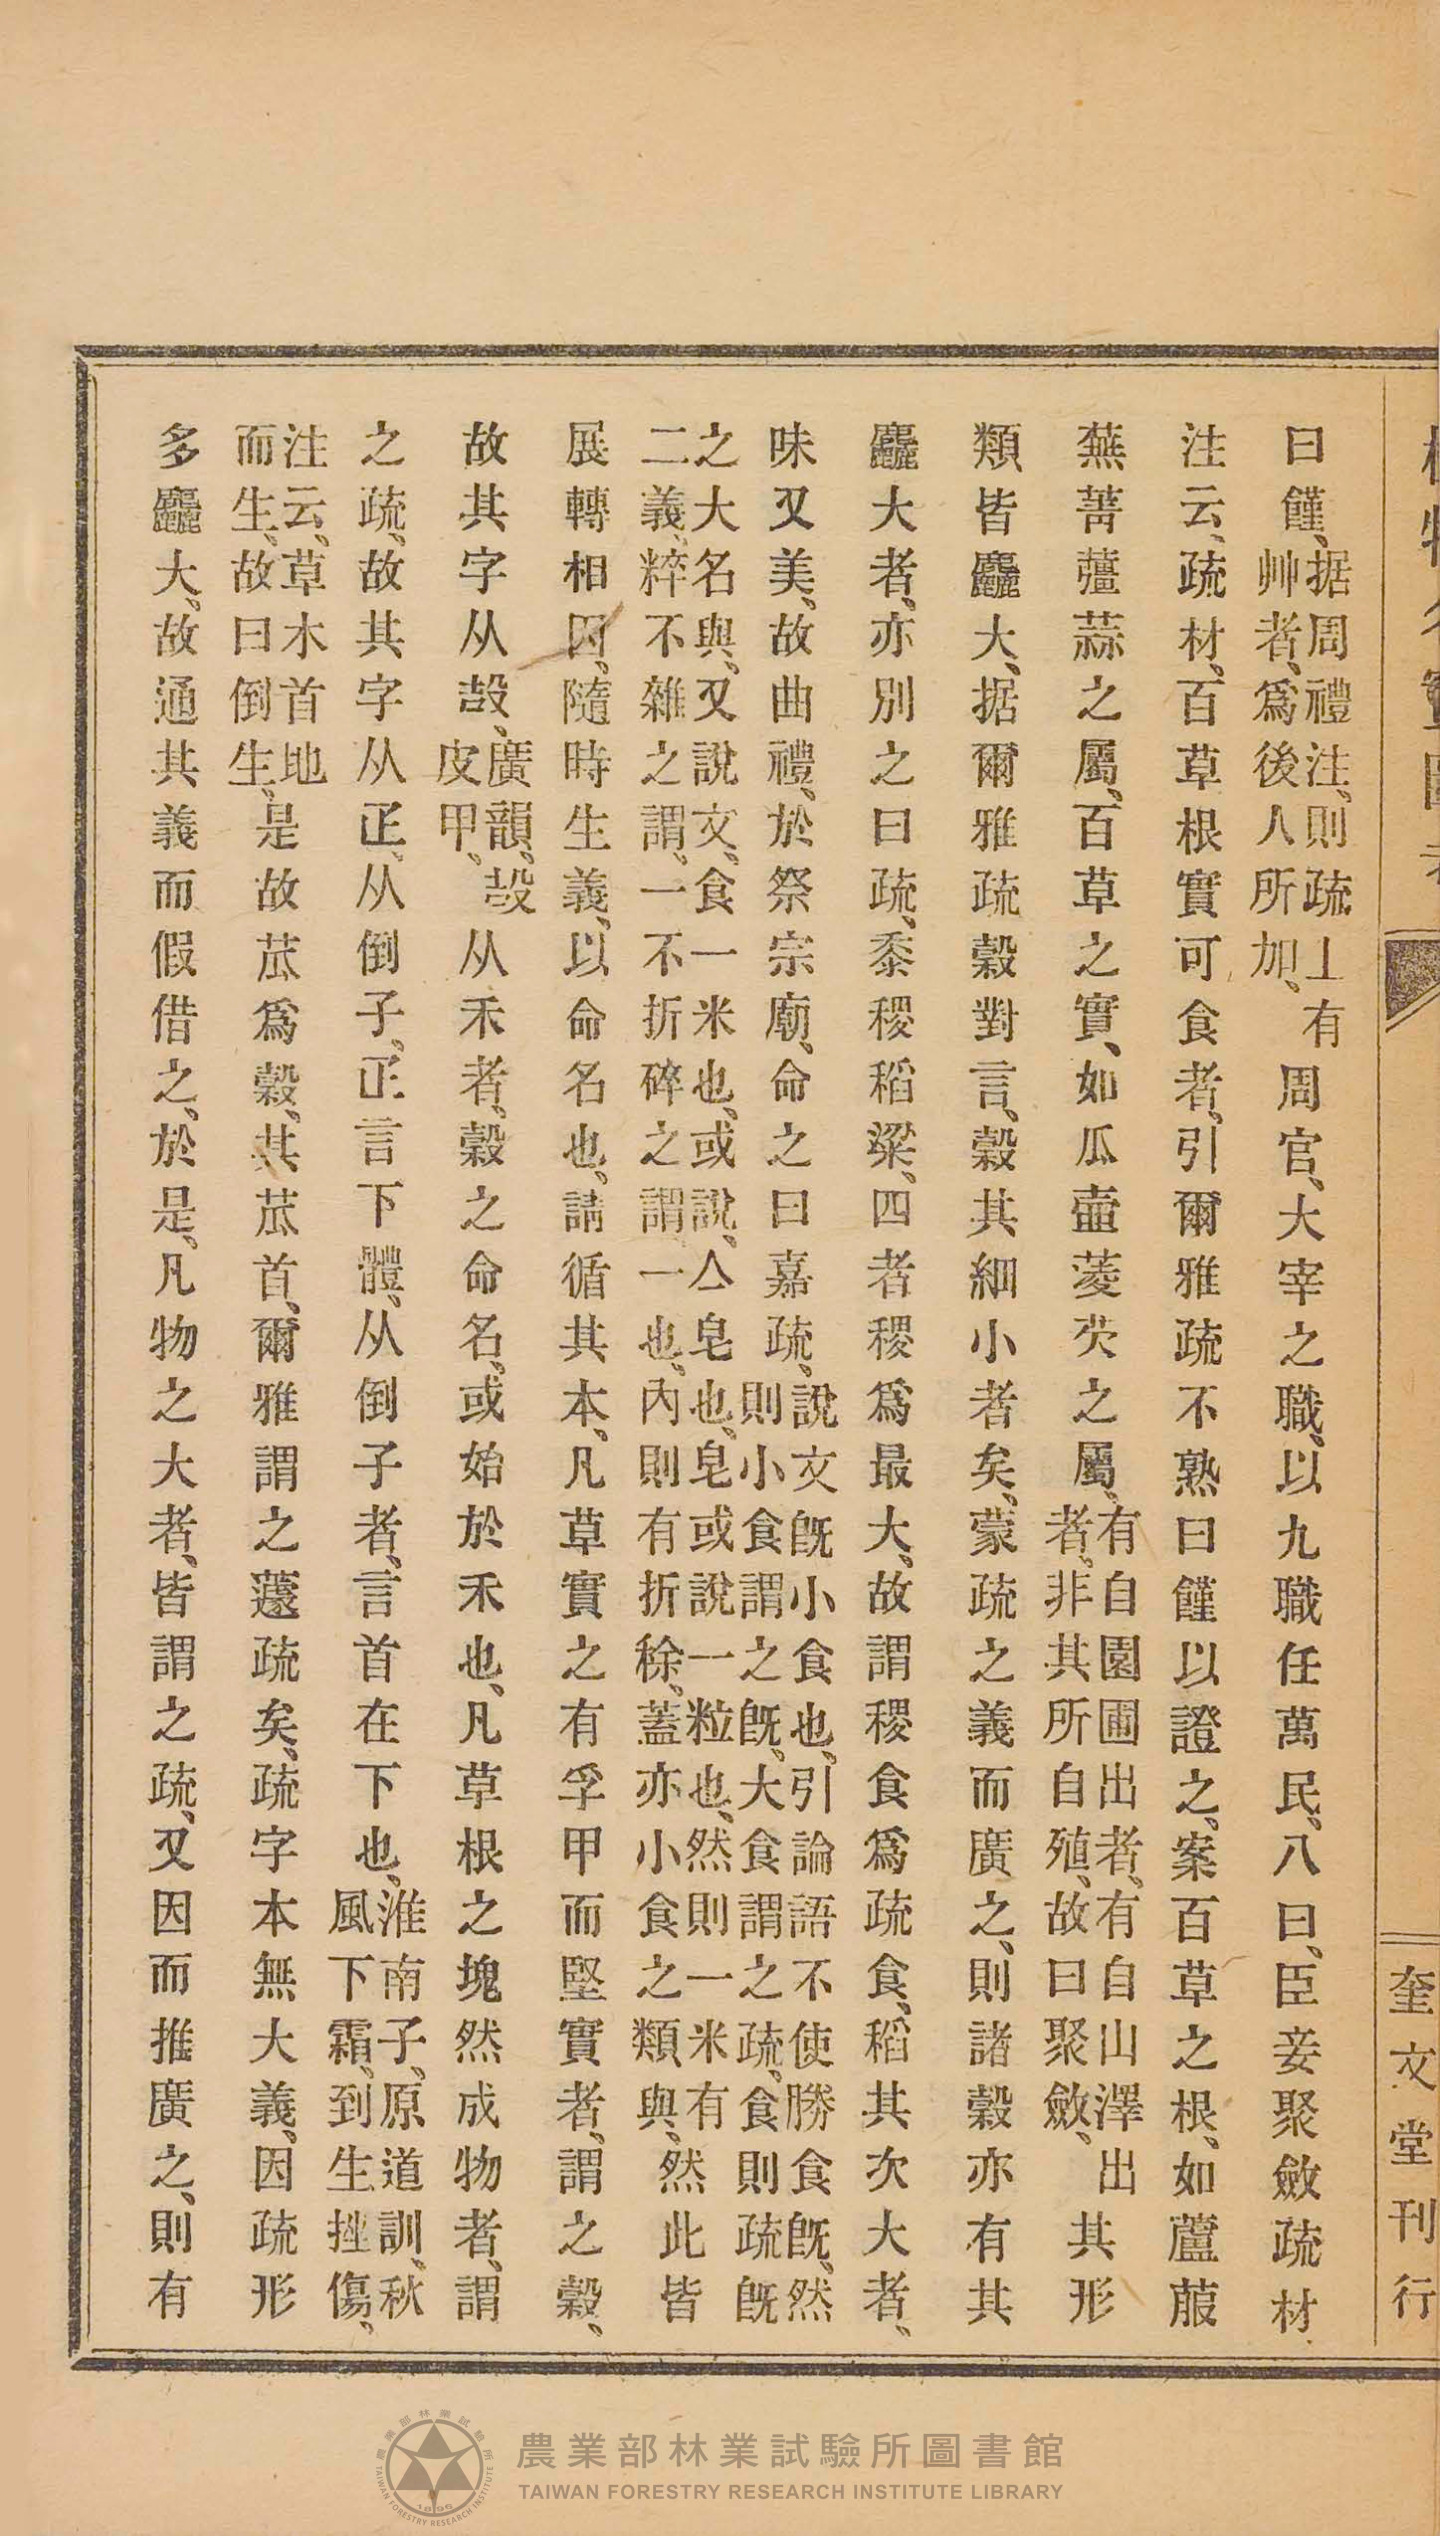 曰饉、据周禮注、則疏丄有艸者、爲後人所加、周官、大宰之職、以九職任萬民、八曰、臣妾聚斂疏材
注云、疏材、百草根實可食者、引爾雅疏不熟曰饉以證之、案百草之根、如蘆菔
蕪菁薑蒜之屬、百草之實、如瓜壺菱芡之屬、有自園圃出者、有自山澤出者、非其所自殖、故曰聚斂、其形
類皆麤大、据爾雅疏穀對言、穀其細小者矣、蒙疏之義而廣之、則諸穀亦有其
麤大者、亦別之曰疏、黍稷稻粱、四者稷爲最大、故謂稷食爲疏食、稻其次大者、
味又美、故曲禮、於祭宗廟、命之曰嘉疏、說文旣小食也、引論語不使勝食旣、然則小食謂之旣、大食謂之疏、食則疏旣
之大名與、又說文、食一米也、或說、亼皀也、皀或說一粒也、然則一米有二義、粹不雜之謂、一不折碎之謂、一也、內則有折稌、蓋亦小食之類與、然此皆
展轉相因、隨時生義、以命名也、請循其本、凡草實之有孚甲而堅實者、謂之穀、
故其字从㱿、廣韻、㱿皮甲、从禾者、穀之命名、或始於禾也、凡草根之塊然成物者、謂
之疏、故其字从𤴓、从倒子、𤴓言下體、从倒子者、言首在下也、淮南子、原道訓、秋風下霜、到生挫傷、
注云、草木首地而生、故曰倒生、是故苽爲穀、其苽首、爾雅謂之蘧疏矣、疏字本無大義、因疏形
多麤大、故通其義而假借之、於是、凡物之大者、皆謂之疏、又因而推廣之、則有
奎文堂刊行
農業部林業試驗所圖書館
TAIWAN FORESTRY RESEARCH INSTITUTE LIBRARY
1896